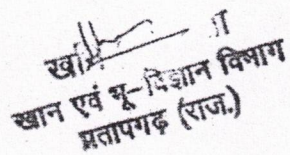 खान एवं भू-विज्ञान विभाग
प्रतापगढ़ (राज.)